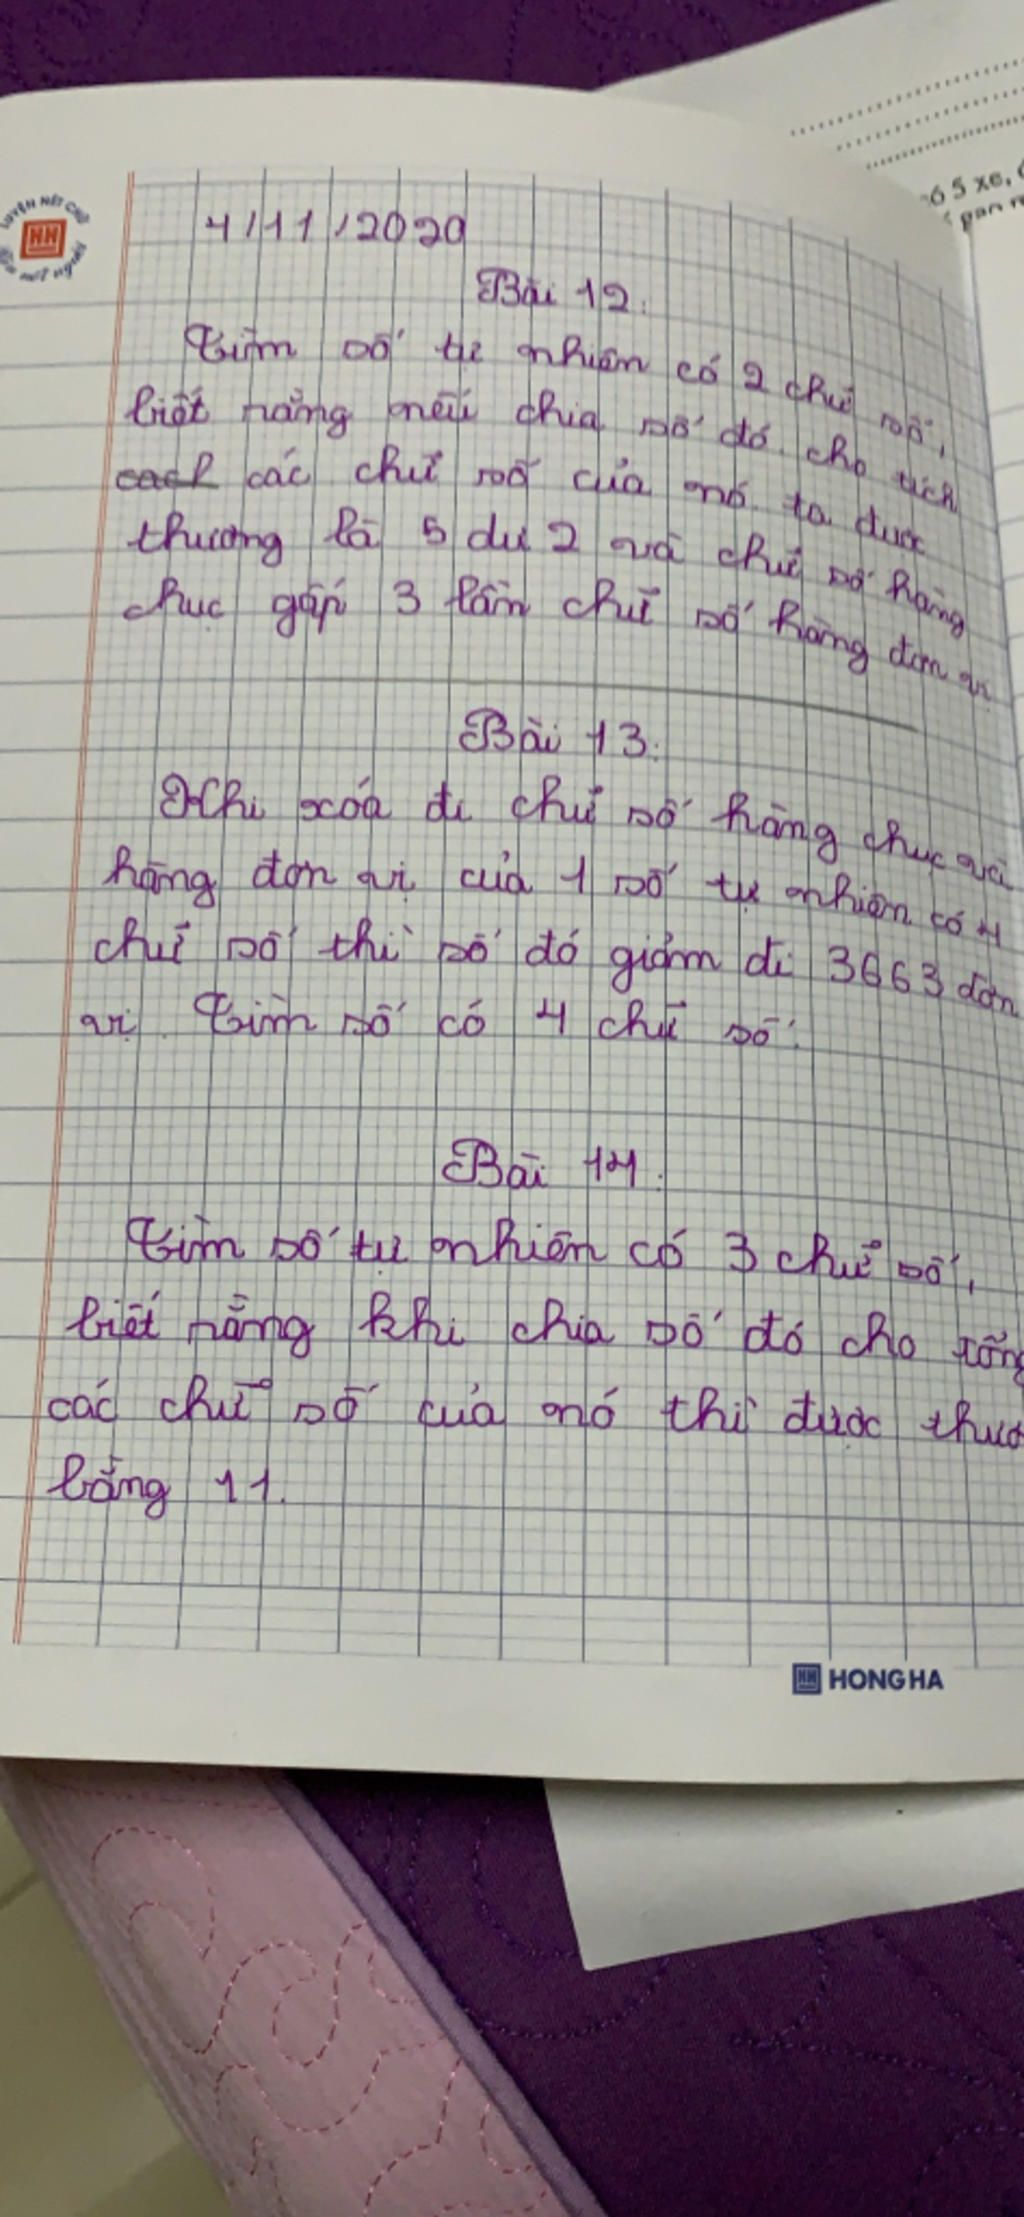 LUYỆN NÉT CHỮ
HH
Rèn nết người
ó 5 xe,
4/11/2020
Bài 12.
Tìm số tự nhiên có 2 chữ số,
biết rằng nếu chia số đó cho tích
các chữ số của nó ta được
thương là 5 dư 2 và chữ số hàng
chục gấp 3 lần chữ số hàng đơn vị
Bài 13.
Khi xóa đi chữ số hàng chục và
hàng đơn vị của 1 số tự nhiên có 4
chữ số thì số đó giảm đi 3663 đơn
vị. Tìm số có 4 chữ số.
Bài 14.
Tìm số tự nhiên có 3 chữ số,
biết rằng khi chia số đó cho tổng
các chữ số của nó thì được thươ
bằng 11.
HH HONG HA